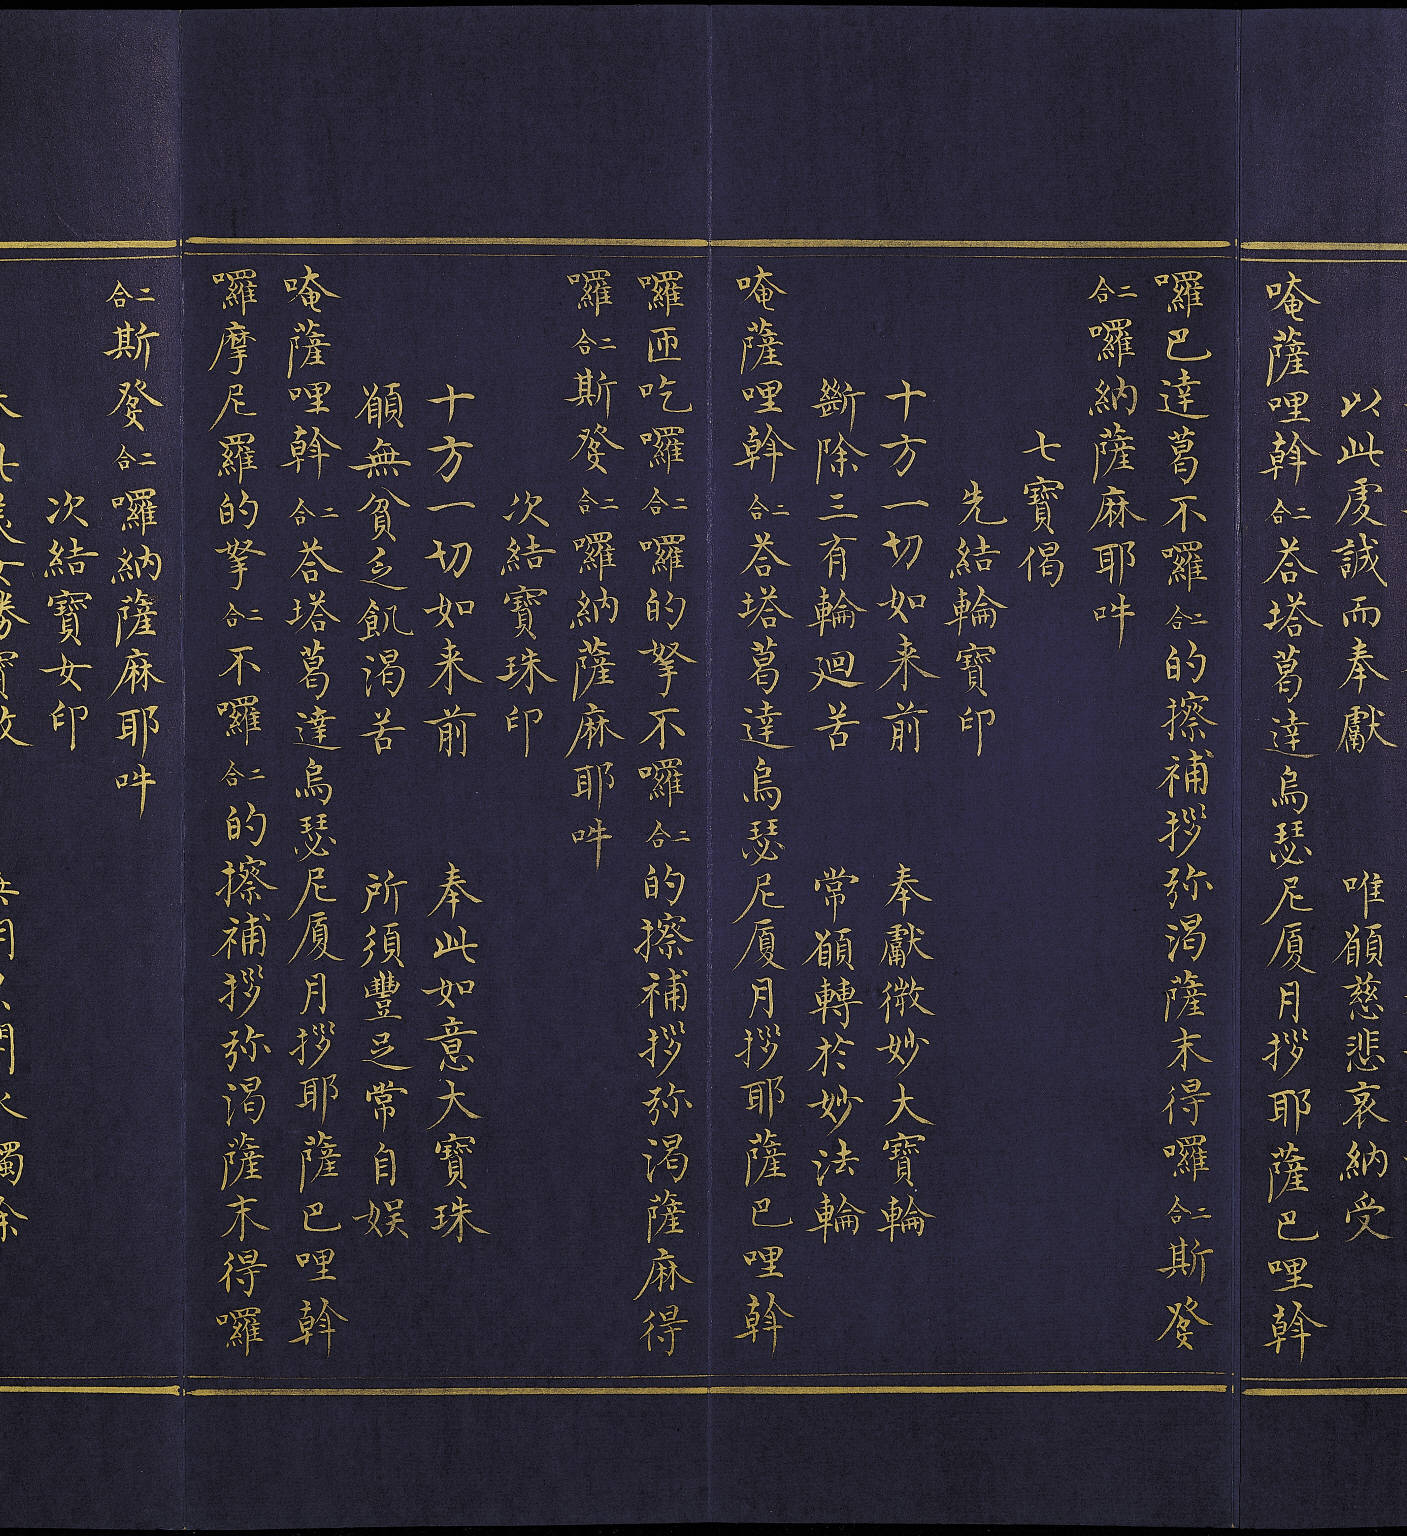 以此虔誠而奉獻　唯願慈悲哀納受
唵薩哩斡二合荅塔葛達烏瑟尼厦月拶耶薩巴哩斡
囉巴達葛不囉二合的擦補拶弥渴薩末得囉二合斯癹
二合囉納薩麻耶吽
七寶偈
先結輪寶印
十方一切如来前　奉獻微妙大寶輪
斷除三有輪廻苦　常願轉於妙法輪
唵薩哩斡二合荅塔葛達烏瑟尼厦月拶耶薩巴哩斡
囉匝吃囉二合囉的拏不囉二合的擦補拶弥渴薩麻得
囉二合斯癹二合囉納薩麻耶吽
次結寶珠印
十方一切如来前　奉此如意大寶珠
願無貧乏飢渴苦　所須豐足常自娱
唵薩哩斡二合荅塔葛達烏瑟尼厦月拶耶薩巴哩斡
囉摩尼羅的拏二合不囉二合的擦補拶弥渴薩末得囉
二合斯癹二合囉納薩麻耶吽
次結寶女印